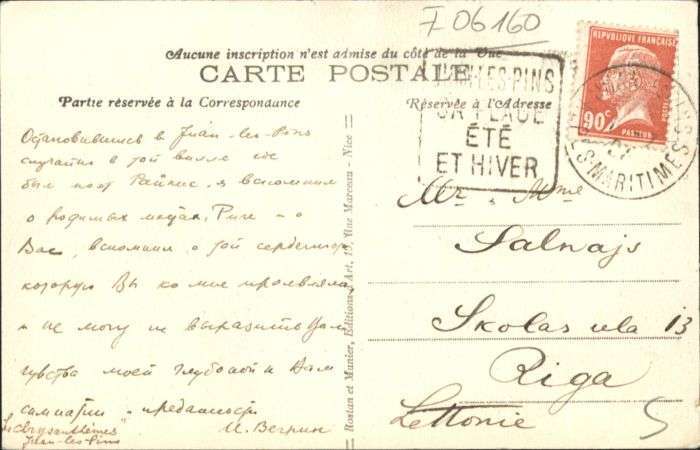 F 06160
Aucune inscription n'est admise du côté de la Vue
CARTE POSTALE
Partie réservée à la Correspondance
Réservée à l'Adresse
JUAN-LES-PINS
SA PLAGE
ÉTÉ
ET HIVER
REPUBLIQUE FRANÇAISE
90c
PASTEUR
ES-MARITIMES
Остановившись в Juan-les-Pins
случайно в той вилле где
был поэт Райнис, я вспомнил
о родимых местах, Риге и о
Вас, вспомнил о той сердечности
которую Вы ко мне проявляли,
и не могу не выразить Вам
чувства моей глубокой к Вам
симпатии и преданности
И. Вегрин
"Chrysanthèmes"
Juan-les-Pins
Rostan et Munier, Editions d'Art, 15, Rue Marceau - Nice
Mr & Mme
Salnajs
Skolas iela 13
Riga
Lettonie
5